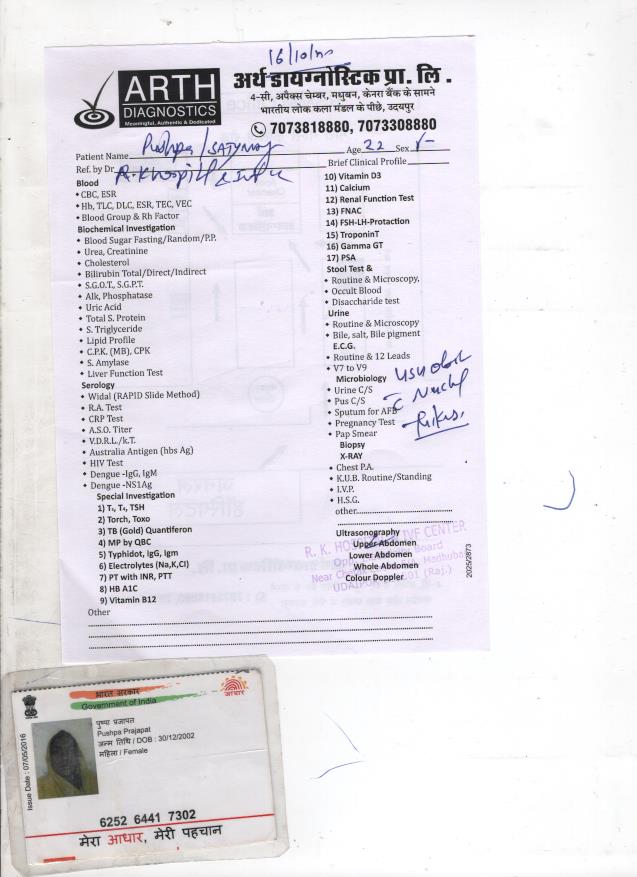 16/10/
ARTH
DIAGNOSTICS
Meaningful, Authentic & Dedicated
अर्थ डायग्नोस्टिक प्रा. लि.
4-सी, अपैक्स चेम्बर, मधुबन, केनरा बैंक के सामने
भारतीय लोक कला मंडल के पीछे, उदयपुर
7073818880, 7073308880
Patient Name Pushpa / Age 22 Sex F
Ref. by Dr. R.K hospital Brief Clinical Profile
Blood
CBC, ESR
Hb, TLC, DLC, ESR, TEC, VEC
Blood Group & Rh Factor
Biochemical Investigation
Blood Sugar Fasting/Random/P.P.
Urea, Creatinine
Cholesterol
Bilirubin Total/Direct/Indirect
S.G.O.T., S.G.P.T.
Alk, Phosphatase
Uric Acid
Total S. Protein
S. Triglyceride
Lipid Profile
C.P.K. (MB), CPK
S. Amylase
Liver Function Test
Serology
Widal (RAPID Slide Method)
R.A. Test
CRP Test
A.S.O. Titer
V.D.R.L./k.T.
Australia Antigen (hbs Ag)
HIV Test
Dengue -IgG, IgM
Dengue -NS1Ag
Special Investigation
1) T₃, T₄, TSH
2) Torch, Toxo
3) TB (Gold) Quantiferon
4) MP by QBC
5) Typhidot, IgG, Igm
6) Electrolytes (Na,K,Cl)
7) PT with INR, PTT
8) HB A1C
9) Vitamin B12
Other
10) Vitamin D3
11) Calcium
12) Renal Function Test
13) FNAC
14) FSH-LH-Protaction
15) TroponinT
16) Gamma GT
17) PSA
Stool Test &
Routine & Microscopy,
Occult Blood
Disaccharide test
Urine
Routine & Microscopy
Bile, salt, Bile pigment
E.C.G.
Routine & 12 Leads
V7 to V9
Microbiology
Urine C/S
Pus C/S
Sputum for AFB
Pregnancy Test
Pap Smear
Biopsy
X-RAY
Chest P.A.
K.U.B. Routine/Standing
I.V.P.
H.S.G.
other
Ultrasonography
Upper Abdomen
Lower Abdomen
Whole Abdomen
Colour Doppler
2025/2873
भारत सरकार
Government of India
आधार
Issue Date : 07/05/2016
पुष्पा प्रजापत
Pushpa Prajapat
जन्म तिथि / DOB : 30/12/2002
महिला / Female
6252 6441 7302
मेरा आधार, मेरी पहचान